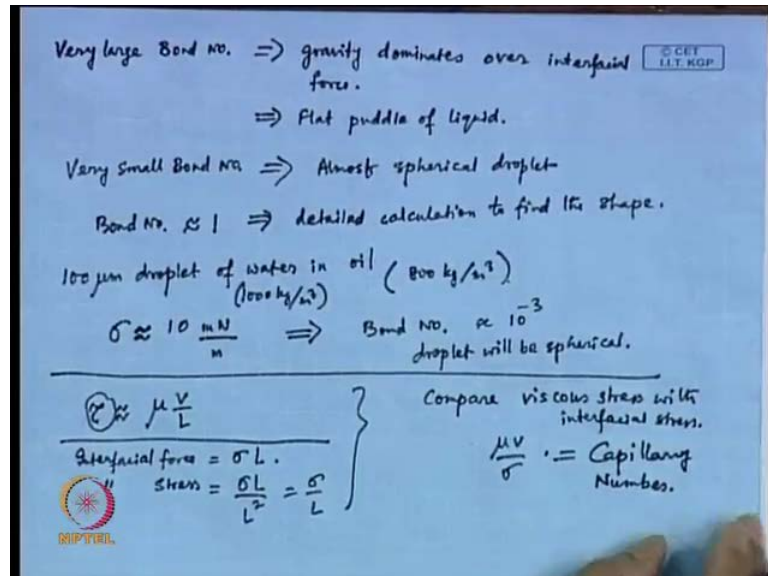 Very large Bond No. => gravity dominates over interfacial force.
=> Flat puddle of liquid.
Very small Bond No. => Almost spherical droplet
Bond No. ≈ 1 => detailed calculation to find the shape.
100 μm droplet of water in oil (800 kg/m³)
(1000 kg/m³)
σ ≈ 10 mN/m => Bond No. ∝ 10⁻³
droplet will be spherical.
τ ≈ μ V/L
Interfacial force = σ L.
" stress = σL/L² = σ/L
Compare viscous stress with
interfacial stress.
μV/σ = Capillary
Number.
© CET
I.I.T. KGP
NPTEL